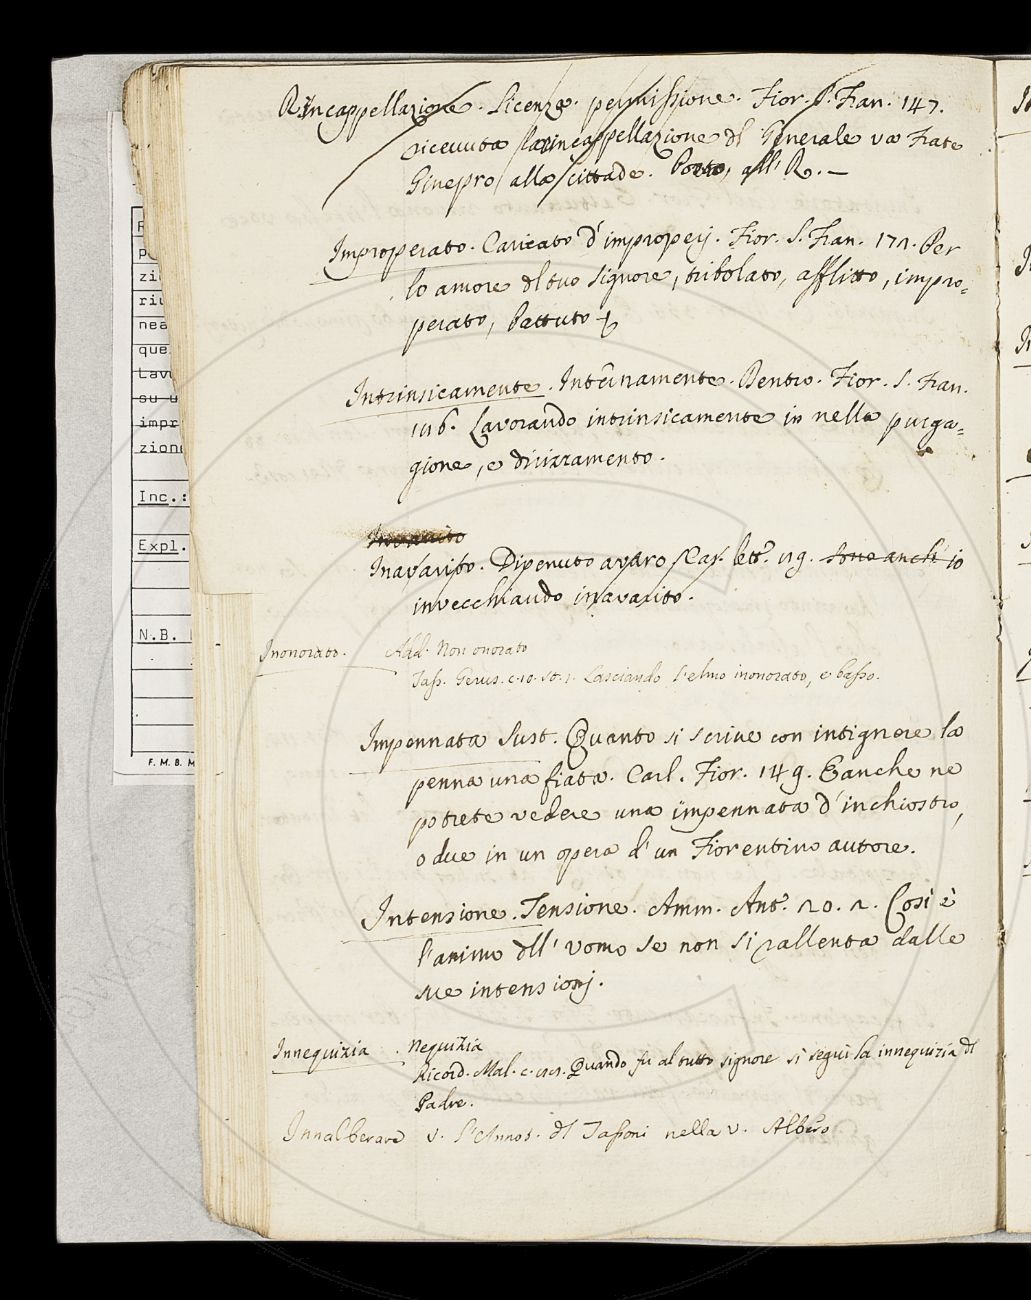 Rincappellazione. Licenza. permissione. Fior. S. Fran. 147.
ricevuta la rincappellazione dl Generale va Frate
Ginepro alla cittade. Posto, all' R. —
Improperato. Caricato d'improperj. Fior. S. Fran. 171. Per
lo amore dl tuo Signore, tribolato, afflitto, impro=
perato, battuto
Intrinsicamente. Internamente. Dentro. Fior. S. Fran.
Lavorando intrinsicamente in nella purga=
gione, e dirizzamento.
Inavarito
Inavarito. Divenuto avaro Cas. lett. Sono anch' io
invecchiando inavarito.
Inonorato. Add. Non onorato
Tass. Gerus. c. 10. st. 1. Lasciando l'elmo inonorato, e basso.
Impennata Sust. Quanto si scrive con intignere la
penna una fiata. Carl. Fior. 149. E anche ne
potrete vedere una impennata d'inchiostro,
o due in un opera d'un Fiorentino autore.
Intensione. Tensione. Amm. Ant. 20. 2. Così è
l'animo dll' uomo se non si rallenta dalle
sue intensionj.
Innequizia. Nequizia
Ricord. Mal. c. Quando fu al tutto signore si seguì la innequizia dl
Padre.
Innalberare v. l'Annot. dl Tassoni nella v. Albero
zi
nea
que
Lavo
su u
impr
zion
Inc.:
Expl.
N.B.
F. M. B. M